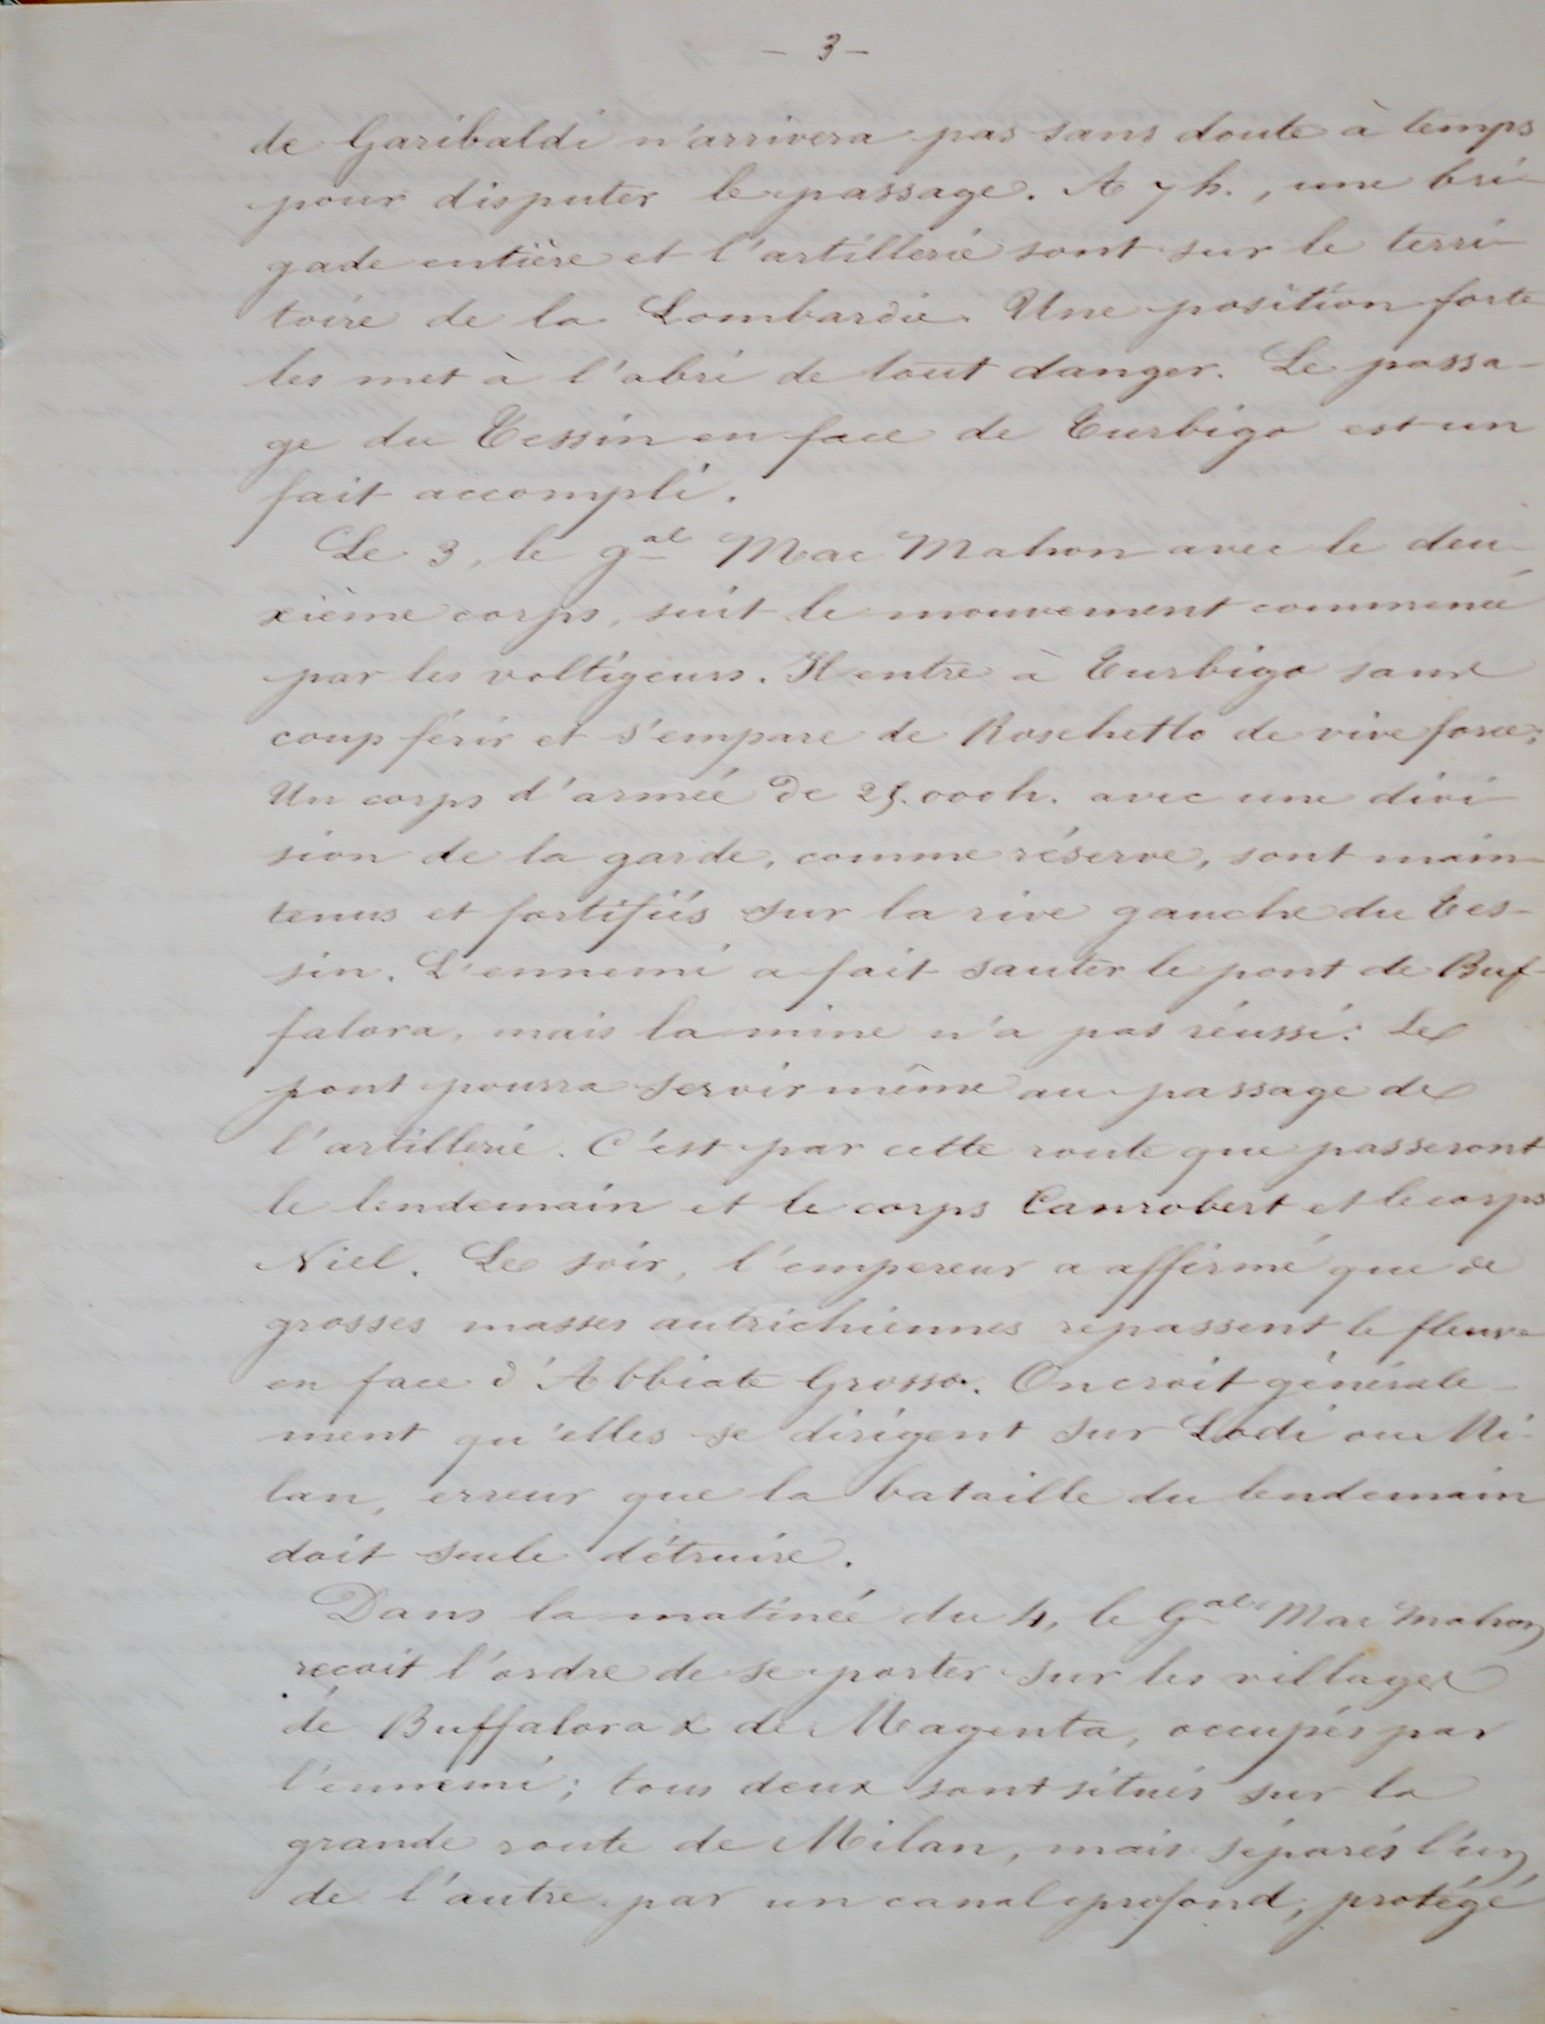 - 3 -
de Garibaldi n'arrivera pas sans doute à temps
pour disputer le passage. A 7 h., une bri-
gade entière et l'artillerie sont sur le terri-
toire de la Lombardie. Une position forte
les met à l'abri de tout danger. Le passa-
ge du Tessin en face de Turbigo est un
fait accompli.
Le 3, le gal Mac Mahon avec le deu-
xième corps, suit le mouvement commencé
par les voltigeurs. Il entre à Turbigo sans
coup férir et s'empare de Roschetto de vive force;
Un corps d'armée de 25.000 h. avec une divi-
sion de la garde, comme réserve, sont main-
tenus et fortifiés sur la rive gauche du Tes-
sin. L'ennemi a fait sauter le pont de Buf-
falora, mais la mine n'a pas réussi. Le
pont pourra servir même au passage de
l'artillerie. C'est par cette route que passeront
le lendemain et le corps Canrobert et le corps
Niel. Le soir, l'empereur a affirmé que de
grosses masses autrichiennes repassent le fleuve
en face d'Abbiate Grosso. On croit générale-
ment qu'elles se dirigent sur Lodi ou Mi-
lan, erreur que la bataille du lendemain
doit seule détruire.
Dans la matinée du 4, le Gal Mac Mahon
reçoit l'ordre de se porter sur les villages
de Buffalora & de Magenta, occupés par
l'ennemi; tous deux sont situés sur la
grande route de Milan, mais séparés l'un
de l'autre par un canal profond, protégé